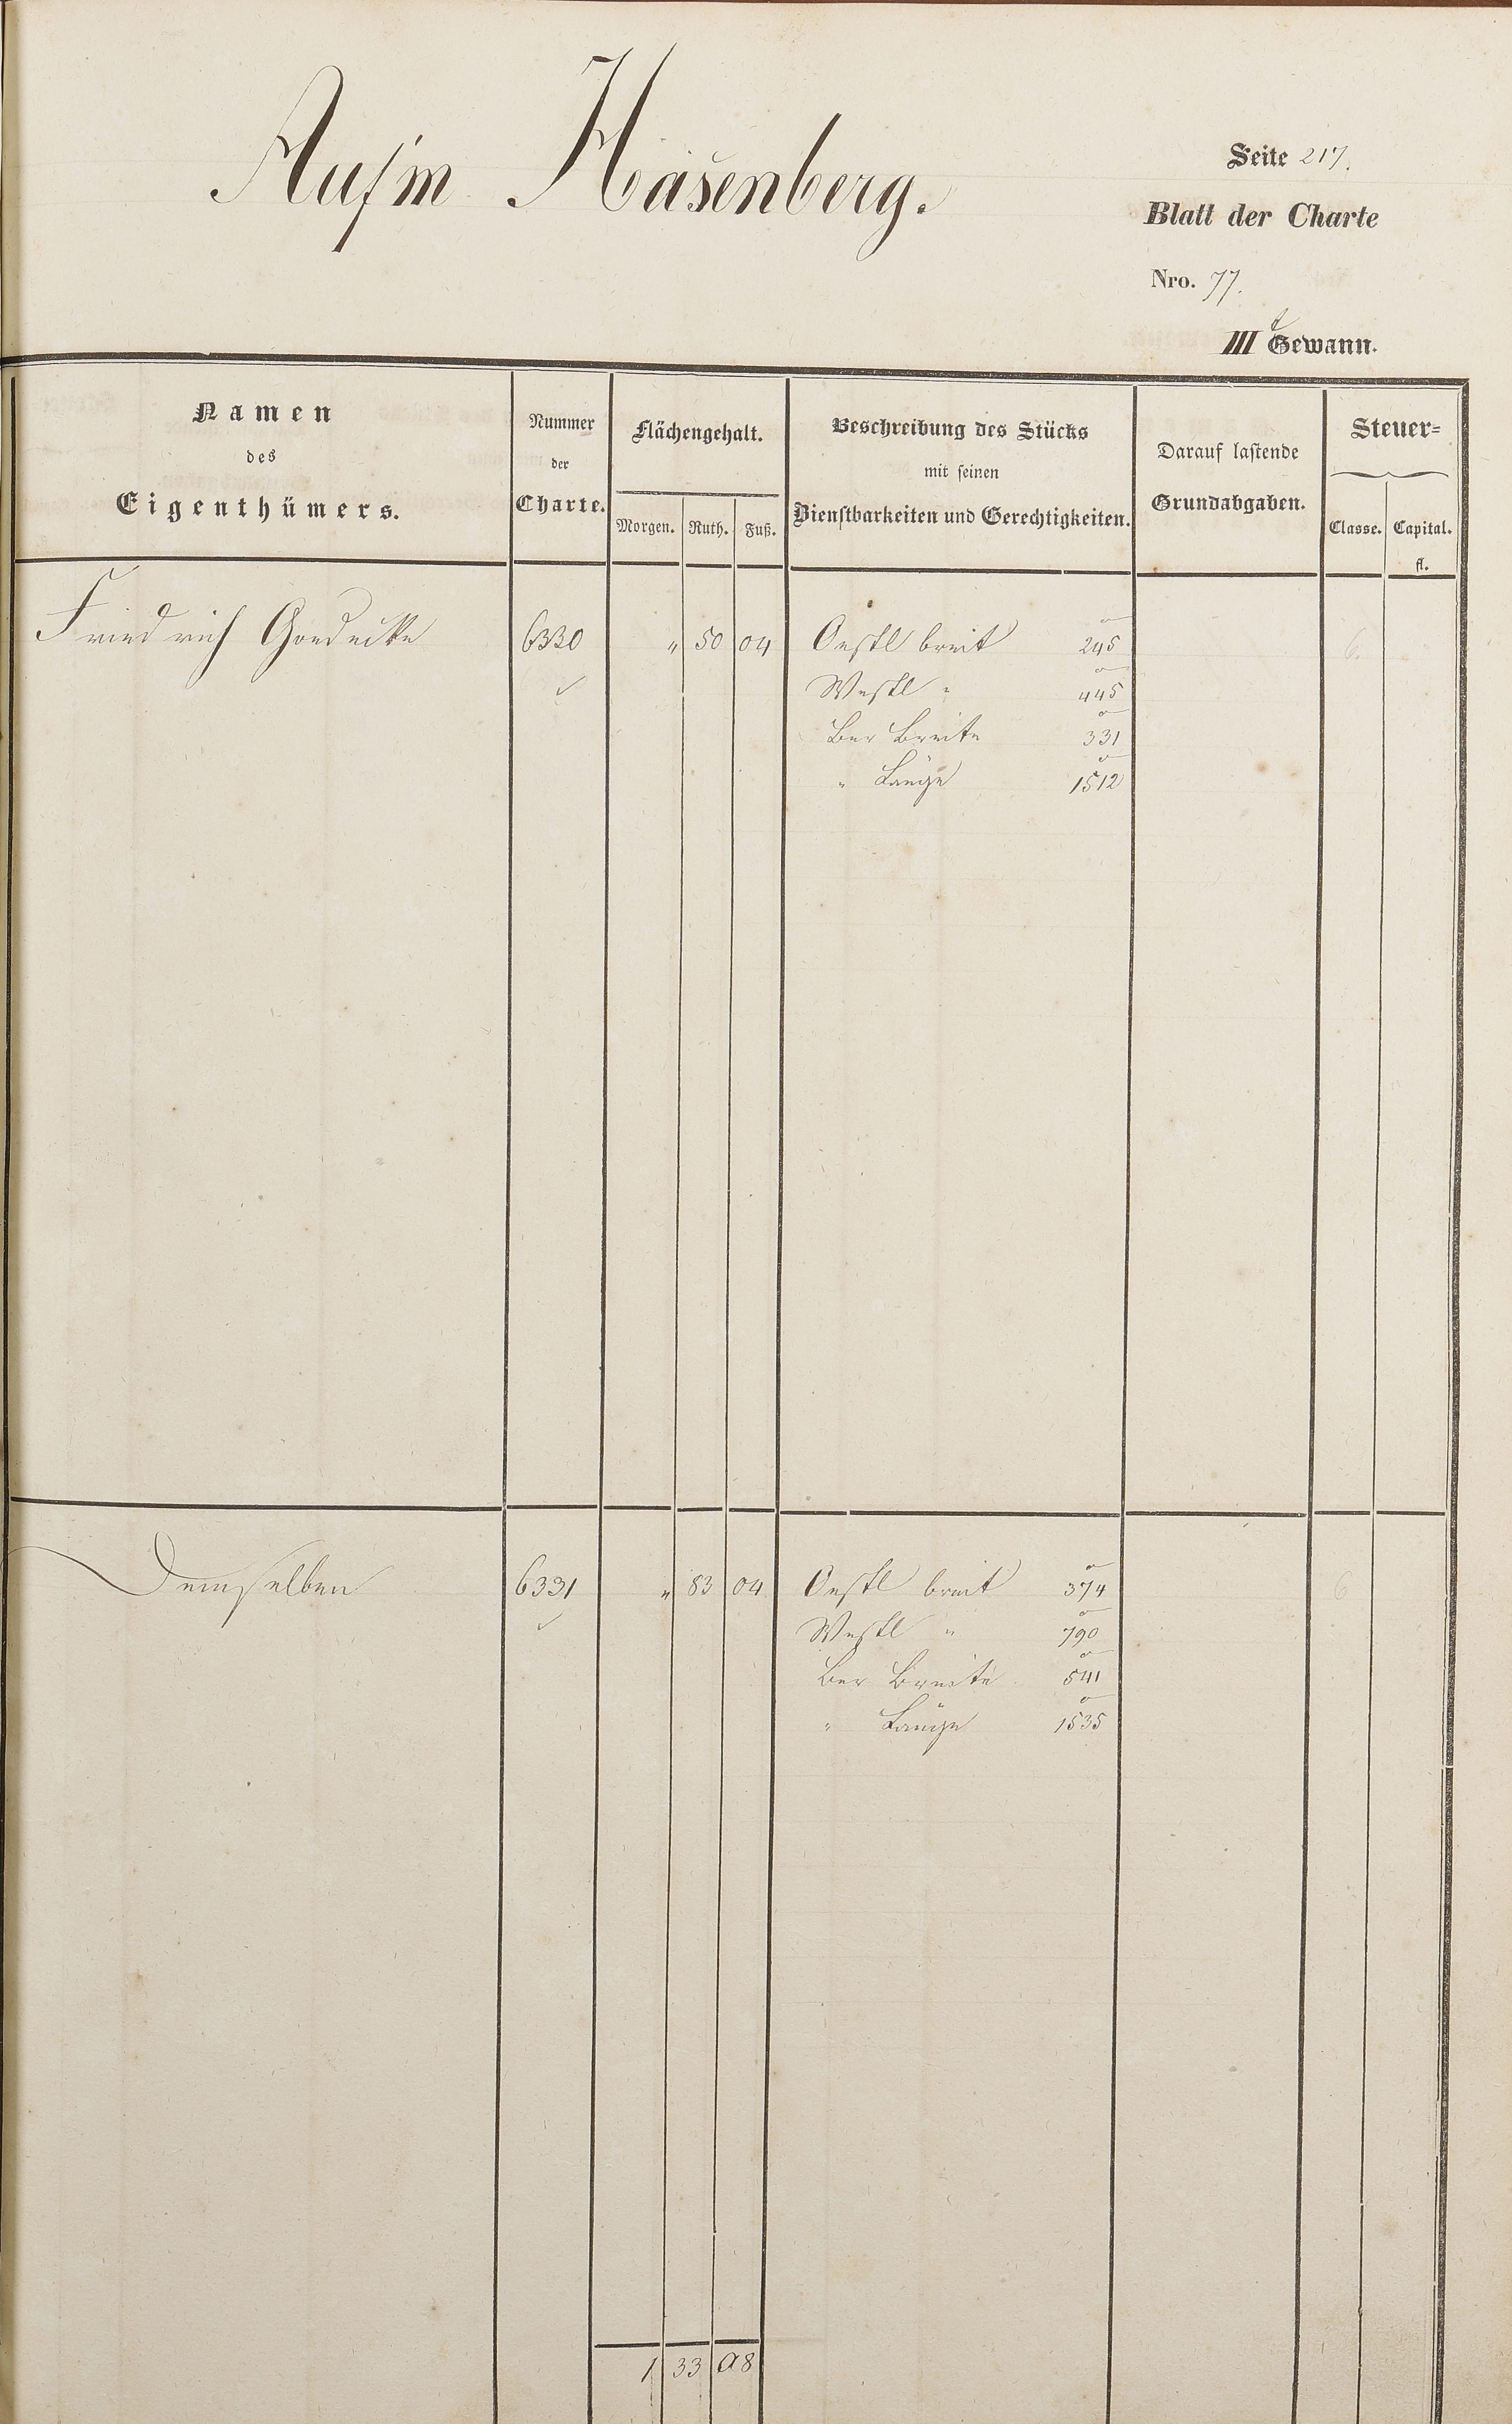 Auf'm Hasenberg.
Seite 217.
Blatt der Charte
Nro. 77.
III t Gewann.
Namen
des
Eigenthümers.
Nummer
der
Charte.
Flächengehalt.
Morgen. Ruth. Fuß.
Beschreibung des Stücks
mit seinen
Dienstbarkeiten und Gerechtigkeiten.
Darauf lastende
Grundabgaben.
Steuer=
Classe. Capital.
fl.
Friedrich Goedecke 6330 " 50 04 Oestl breit 245 6.
Westl " 445
Ber Breite 331
" Länge 1512
Demselben 6331 " 83 04 Oestl breit 374 6
Westl " 790
Ber Breite 541
" Länge 1535
1 33 08